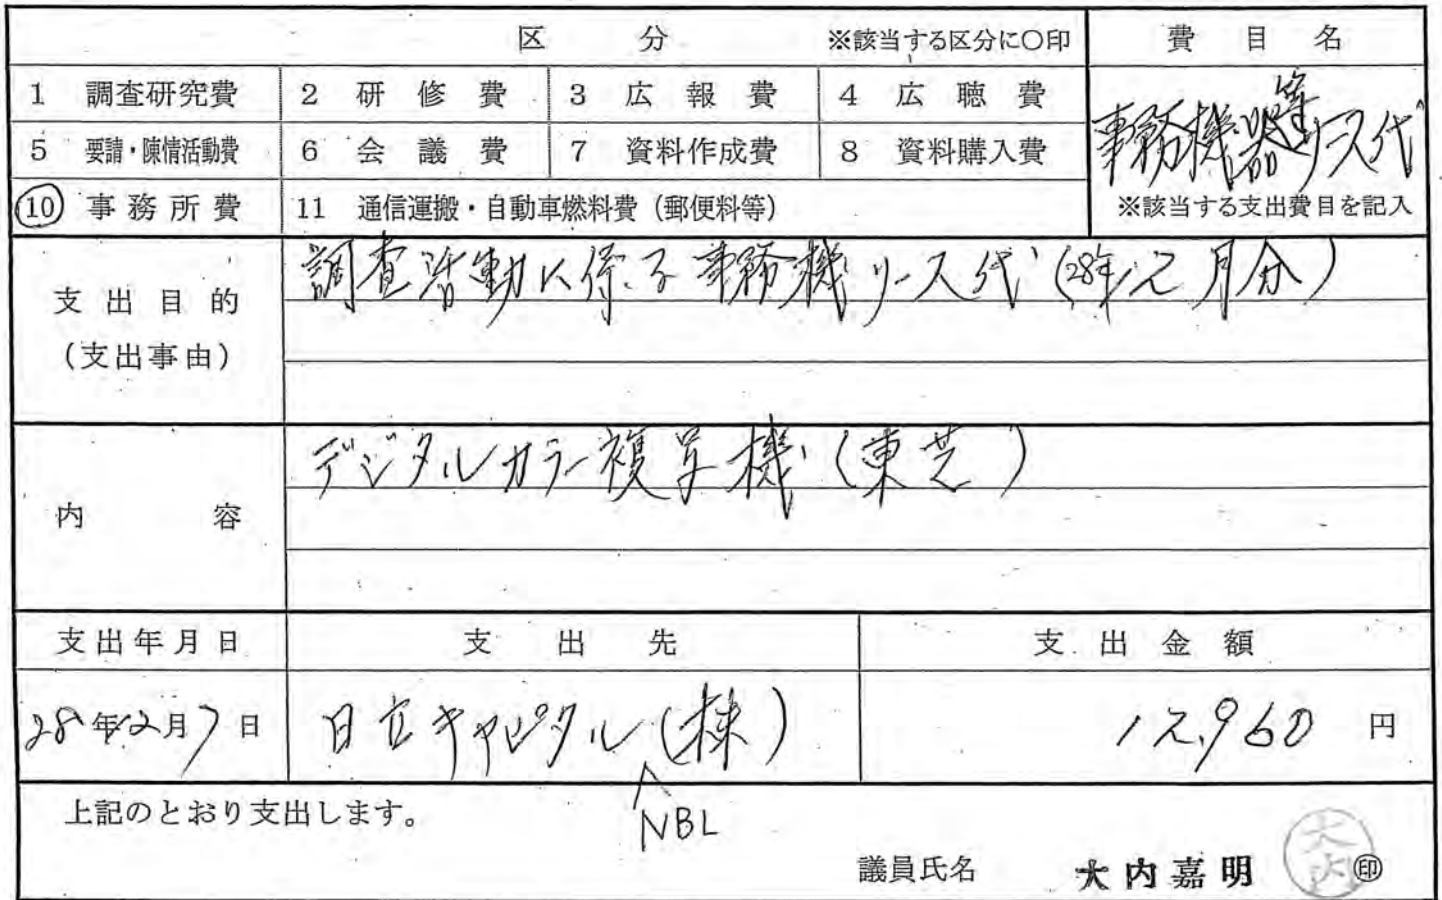 区 分 ※該当する区分に〇印 費 目 名
1 調査研究費 2 研 修 費 3 広 報 費 4 広 聴 費
事務機器等リース代
5 要請・陳情活動費 6 会 議 費 7 資料作成費 8 資料購入費
⑩ 事 務 所 費 11 通信運搬・自動車燃料費（郵便料等） ※該当する支出費目を記入
支 出 目 的
（支出事由）
調査活動に係る事務機リース代（28年12月分）
内 容
デジタルカラー複写機（東芝）
支出年月日 支 出 先 支 出 金 額
28年12月7日 日立キャピタル（株） 12,960 円
NBL
上記のとおり支出します。
議員氏名 大内嘉明 ㊞
大内